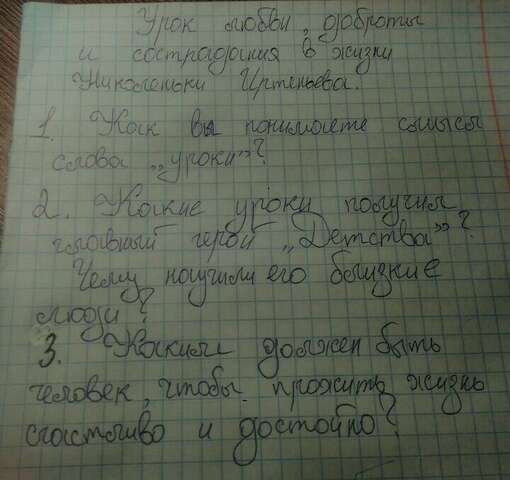 Урок любви, доброты
и сострадания в жизни
Николеньки Иртеньева.
1. Как вы понимаете смысл
слова „уроки"?
2. Какие уроки получил
главный герой „Детства"?
Чему научили его близкие
люди?
3. Каким должен быть
человек, чтобы прожить жизнь
счастливо и достойно?